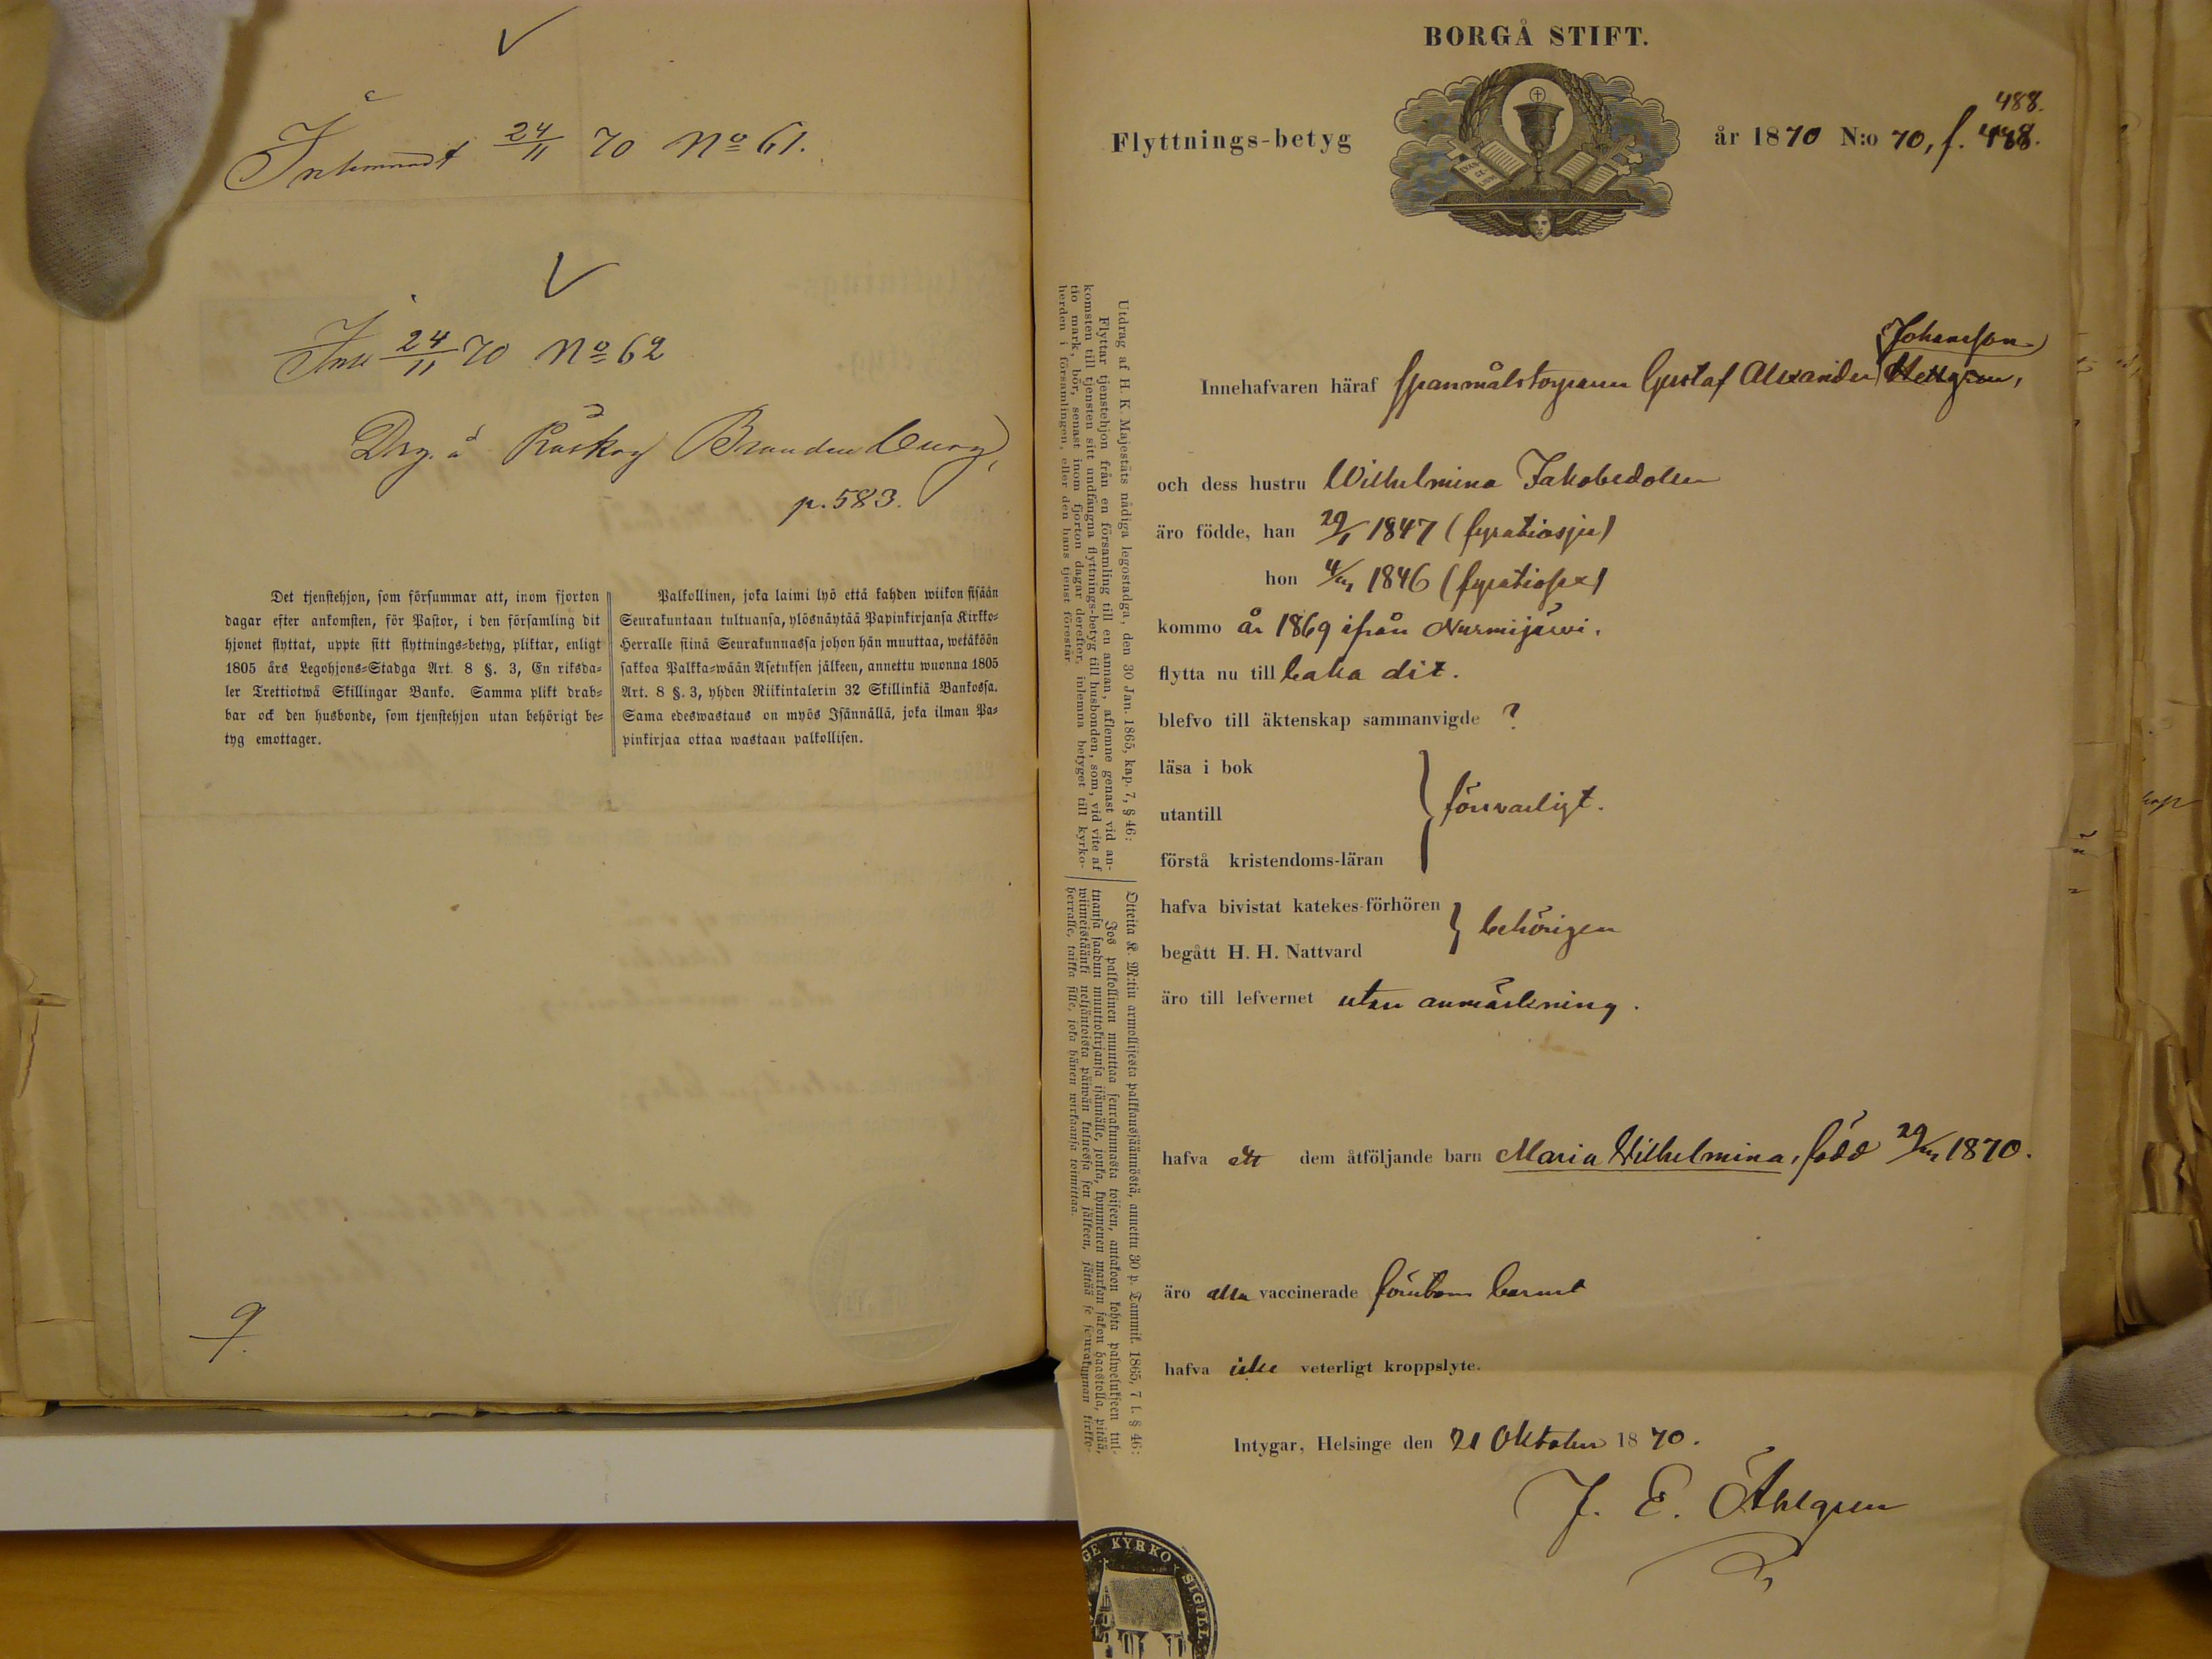 Inkommit 24/11 70 No 61.
Ink 24/11 70 No 62
Drg. å Råskog Brandenburg,
p. 583.
Det tjenstehjon, som försummar att, inom fjorton
dagar efter ankomsten, för Pastor, i den församling dit
hjonet flyttat, uppte sitt flyttnings-betyg, pliktar, enligt
1805 års Legohjons-Stadga Art. 8 §. 3, En riksda-
ler Trettiotwå Skillingar Banko. Samma plikt drab-
bar ock den husbonde, som tjenstehjon utan behörigt be-
tyg emottager.
Palkollinen, joka laimi lyö että kahden wiikon sisään
Seurakuntaan tultuansa, ylösnäytää Papinkirjansa Kirkko-
Herralle siinä Seurakunnassa johon hän muuttaa, wetäköön
sakkoa Palkka-wään Asetuksen jälkeen, annettu wuonna 1805
Art. 8 §. 3, yhden Riikintalerin 32 Skillinkiä Bankossa.
Sama edeswastaus on myös Isännällä, joka ilman Pa-
pinkirjaa ottaa wastaan palkollisen.
9.
BORGÅ STIFT.
Flyttnings-betyg
år 1870 N:o 70, f. 448.
488.
Utdrag af H. K. Majestäts nådiga legostadga, den 30 Jan. 1865, kap. 7, § 46:
Flyttar tjenstehjon från en församling till en annan, aflemne genast vid an-
komsten till tjensten sitt undfångna flyttnings-betyg till husbonden, som, vid vite af
tio mark, bör, senast inom fjorton dagar derefter, inlemna betyget till kyrko-
herden i församlingen, eller den hans tjenst förestår.
Otteita K. M:tin armollisesta palkkaussäännöstä, annettu 30 p. Tammik. 1865, 7 l. § 46:
Jos palkollinen muuttaa seurakunnasta toiseen, antakoon kohta palwelukseen tul-
tuansa saadun muuttokirjansa isännälle, jonka, kymmenen markan sakon haastolla, pitää,
wiimeistäänki neljäntoista päiwän kuluessa sen jälkeen, jättää se seurakunnan kirkko-
herralle, taikka sille, joka hänen wirkaansa toimittaa.
Johansson
Innehafvaren häraf spanmålstorparen Gustaf Alexander Hellgren,
och dess hustru Wilhelmina Jakobsdotter
äro födde, han 29/1 1847 (fyratiosju)
hon 4/ 1846 (fyratiosex)
kommo år 1869 ifrån Nurmijärvi.
flytta nu till baka dit.
blefvo till äktenskap sammanvigde ?
läsa i bok
utantill
försvarligt.
förstå kristendoms-läran
hafva bivistat katekes-förhören
behörigen
begått H. H. Nattvard
äro till lefvernet utan anmärkning.
hafva ett dem åtföljande barn Maria Wilhelmina, född 29/ 1870.
äro alla vaccinerade förutom barnet
hafva icke veterligt kroppslyte.
Intygar, Helsinge den 21 Oktober 1870.
J. E. Öhlgren
GE KYRKO SIGILL